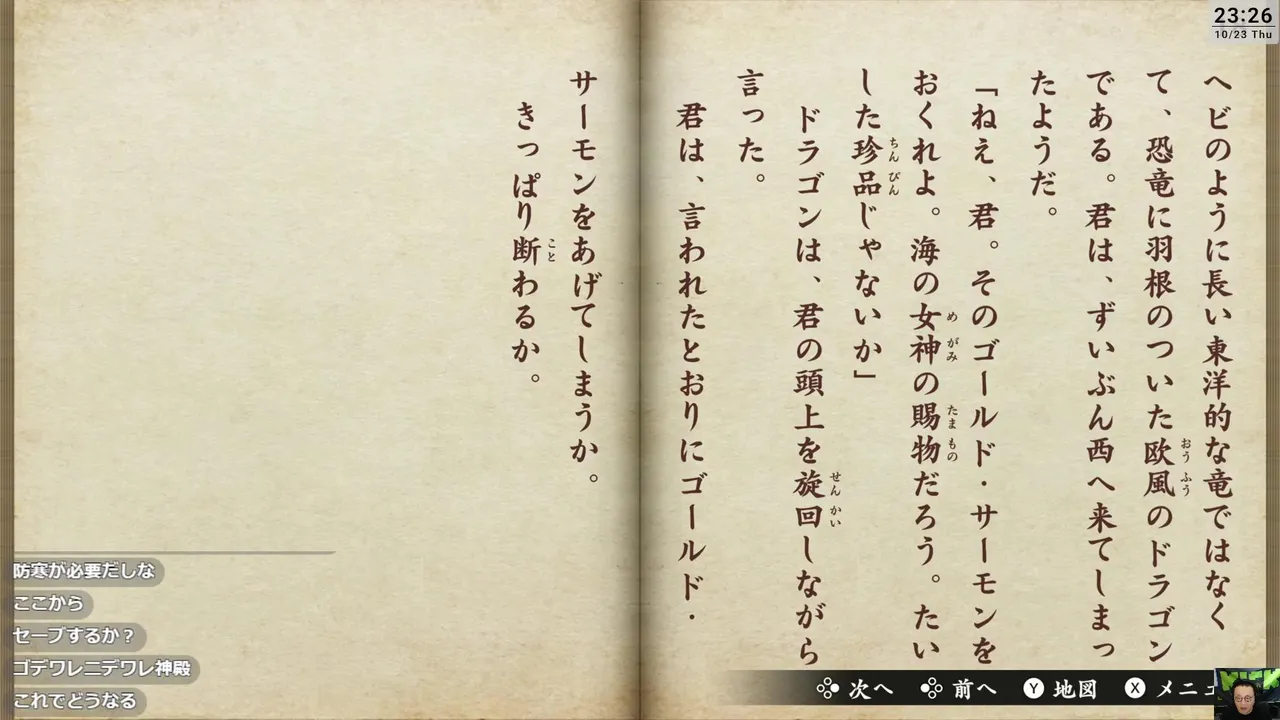 23:26
10/23 Thu
ヘビのように長い東洋的な竜ではなく
て、恐竜に羽根のついた欧風のドラゴン
である。君は、ずいぶん西へ来てしまっ
たようだ。
「ねえ、君。そのゴールド・サーモンを
おくれよ。海の女神の賜物だろう。たい
した珍品じゃないか」
ドラゴンは、君の頭上を旋回しながら
言った。
君は、言われたとおりにゴールド・
サーモンをあげてしまうか。
きっぱり断わるか。
おうふう
めがみ
たまもの
ちんぴん
せんかい
こと
防寒が必要だしな
ここから
セーブするか？
ゴデワレニデワレ神殿
これでどうなる
次へ 前へ Y 地図 X メニュ